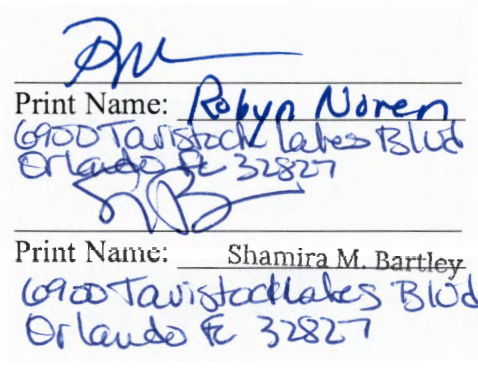 Print Name: Robyn Noren
6900 Tavistock Lakes Blvd
Orlando FL 32827
Print Name: Shamira M. Bartley
6900 Tavistock Lakes Blvd
Orlando FL 32827